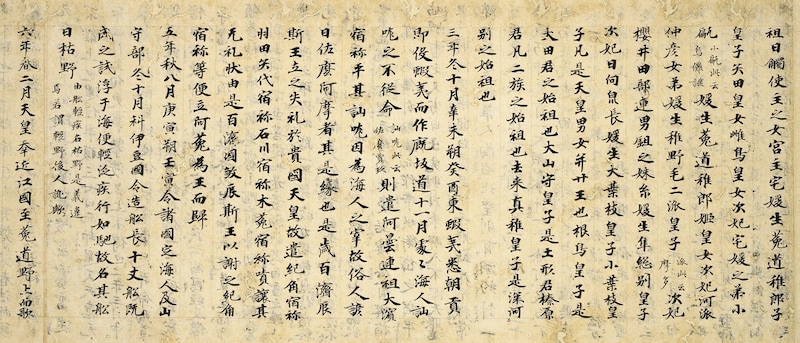 祖日觸使主之女宮主宅媛生菟道稚郎子
皇子矢田皇女雌鳥皇女次妃宅媛之弟小
甂小甂此云烏儺謎媛生菟道稚郎姬皇女次妃河派
仲彦女弟媛生稚野毛二派皇子派此云摩多次妃
櫻井田部連男鉏之妹糸媛生隼総別皇子
次妃日向泉長媛生大葉枝皇子小葉枝皇
子凡是天皇男女并廿王也根鳥皇子是
大田君之始祖也大山守皇子是土形君榛原
君凡二族之始祖也去来真稚皇子是深河
別之始祖也
三年冬十月辛未朔癸酉東蝦夷悉朝貢
即役蝦夷而作厩坂道十一月處々海人訕
哤之不從命訕哤此云佐麼賣玖則遣阿曇連祖大濱
宿祢平其訕哤因為海人之宰故俗人諺
曰佐麼阿摩者其是縁也是歳百濟辰
斯王立之失礼於貴國天皇故遣紀角宿祢
羽田矢代宿祢石川宿祢木菟宿祢嘖讓其
无礼状由是百濟國敓辰斯王以謝之紀角
宿祢等便立阿菀為王而歸
五年秋八月庚寅朔壬寅令諸國定海人及山
守部冬十月科伊豆國令造舩長十丈舩既
成之試浮于海便輕泛疾行如馳故名其舩
曰枯野由舩輕疾名枯野是義違焉若謂輕野後人訛歟
六年春二月天皇幸近江國至菟道野上而歌